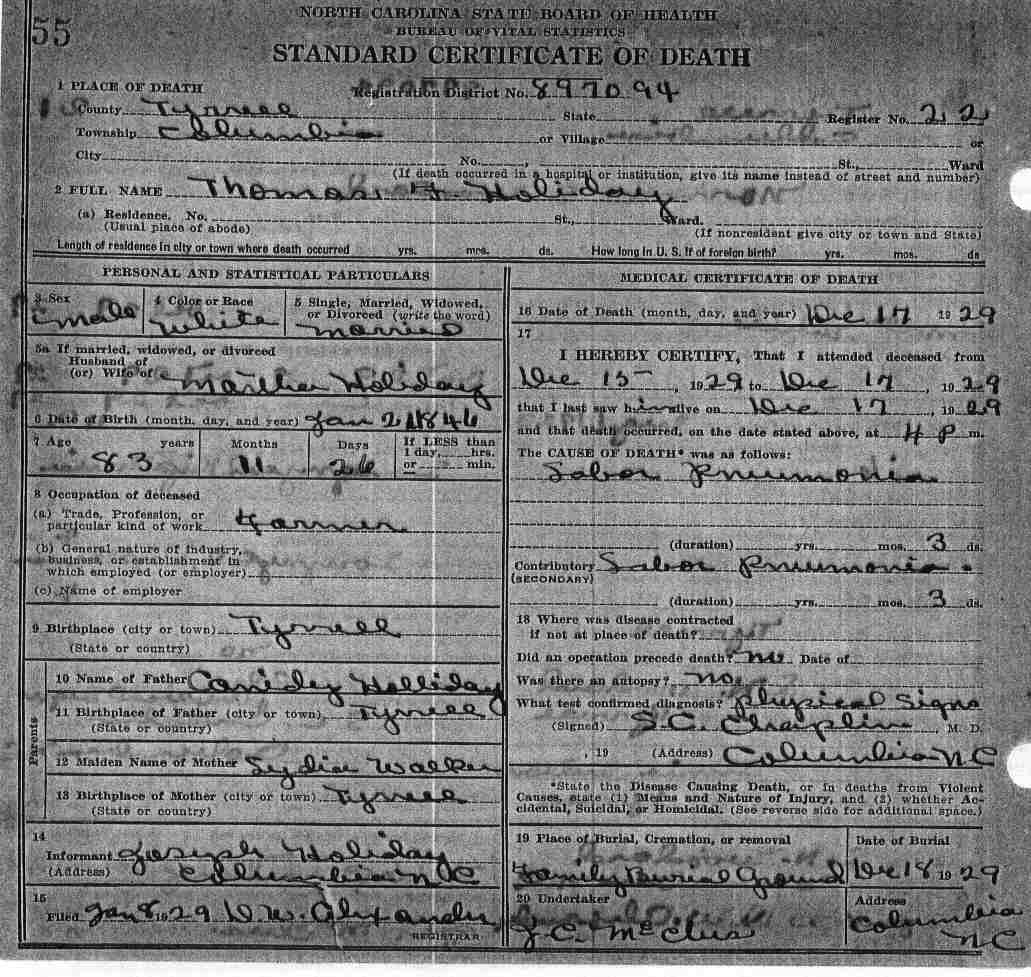 55
NORTH CAROLINA STATE BOARD OF HEALTH
BUREAU OF VITAL STATISTICS
STANDARD CERTIFICATE OF DEATH
1 PLACE OF DEATH Registration District No. 897094
County Tyrrell State Register No. 22
Township Columbia or Village or
City No. , St., Ward
(If death occurred in a hospital or institution, give its name instead of street and number)
2 FULL NAME Thomas F. Holiday
(a) Residence. No. St., Ward.
(Usual place of abode) (If nonresident give city or town and State)
Length of residence in city or town where death occurred yrs. mos. ds. How long in U. S. if of foreign birth? yrs. mos. ds
PERSONAL AND STATISTICAL PARTICULARS
3 Sex 4 Color or Race 5 Single, Married, Widowed,
or Divorced (write the word)
male white married
5a If married, widowed, or divorced
Husband of
(or) Wife of Martha Holiday
6 Date of Birth (month, day, and year) Jan 21 1846
7 Age years Months Days If LESS than
1 day, hrs.
or min.
83 11 26
8 Occupation of deceased
(a) Trade, Profession, or
particular kind of work Farmer
(b) General nature of industry,
business, or establishment in
which employed (or employer)
(c) Name of employer
9 Birthplace (city or town) Tyrrell
(State or country)
Parents
10 Name of Father Holliday
11 Birthplace of Father (city or town) Tyrrell
(State or country)
12 Maiden Name of Mother Lydia Walker
13 Birthplace of Mother (city or town) Tyrrell
(State or country)
14
Informant Joseph Holiday
(Address) Columbia NC
15
Filed Jan 8 1929 D.W. Alexander
REGISTRAR
MEDICAL CERTIFICATE OF DEATH
16 Date of Death (month, day, and year) Dec 17 1929
17
I HEREBY CERTIFY, That I attended deceased from
Dec 15 , 1929 to Dec 17 , 1929
that I last saw him alive on Dec 17 , 1929
and that death occurred, on the date stated above, at 4 P m.
The CAUSE OF DEATH* was as follows:
Lobar Pneumonia
(duration) yrs. mos. 3 ds.
Contributory Lobar Pneumonia.
(SECONDARY)
(duration) yrs. mos. 3 ds.
18 Where was disease contracted
if not at place of death?
Did an operation precede death? no Date of
Was there an autopsy? no
What test confirmed diagnosis? Physical Signs
(Signed) S.C. Chaplin, M. D.
, 19 (Address) Columbia NC
*State the Disease Causing Death, or in deaths from Violent
Causes, state (1) Means and Nature of Injury, and (2) whether Ac-
cidental, Suicidal, or Homicidal. (See reverse side for additional space.)
19 Place of Burial, Cremation, or removal Date of Burial
Family Burial Ground Dec 18 1929
20 Undertaker Address
J.C. Columbia
NC